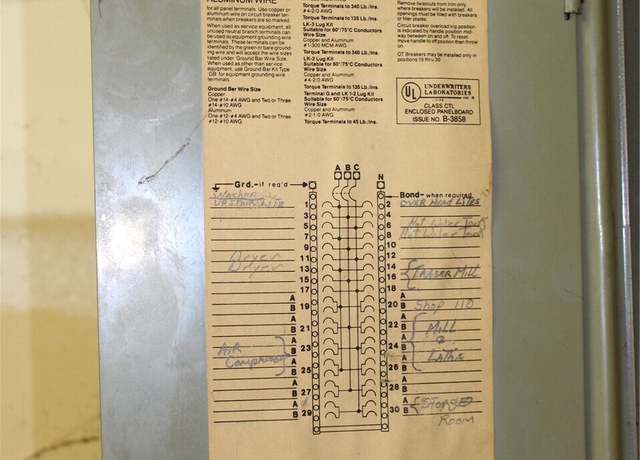 ALUMINUM WIRE
for all panel terminals. Use copper or
aluminum wire on circuit breaker ter-
minals when breakers are so marked.
When used as service equipment, all
unused neutral branch terminals can
be used as equipment grounding wire
terminals. These terminals can be
identified by the green or bare ground-
ing wire and will accept the wire sizes
listed under: Ground Bar Wire Size.
When used as other than service
equipment, use Ground Bar Kit Type
GB for equipment grounding wire
terminals.
Ground Bar Wire Size
Copper
One #14-#4 AWG and Two or Three
#14-#10 AWG
Aluminum
One #12-#4 AWG and Two or Three
#12-#10 AWG
Torque Terminals to 340 Lb./Ins.
#4-2/0 AWG
Torque Terminals to 135 Lb./Ins.
LK-3 Lug Kit
Suitable for 60°/75°C Conductors
Wire Size
Copper and Aluminum
#1-300 MCM AWG
Torque Terminals to 340 Lb./Ins.
LK-2 Lug Kit
Suitable for 60°/75°C Conductors
Wire Size
Copper and Aluminum
#4-2/0 AWG
Torque Terminals to 135 Lb./Ins.
Terminal G and LK 1-2 Lug Kit
Suitable for 60°/75°C Conductors
Wire Size
Copper and Aluminum
#2-1/0 AWG
Torque Terminals to 45 Lb./Ins.
Remove twistouts from trim only
where breakers will be installed. All
openings must be filled with breakers
or filler plates.
Circuit breaker overload trip position
is indicated by handle position mid-
way between on and off. To reset,
move handle to off position then
on.
QT Breakers may be installed only in
positions 19 thru 30
UL
UNDERWRITERS
LABORATORIES
INC.
CLASS CTL
ENCLOSED PANELBOARD
ISSUE NO. B-3858
A B C
Grd.-if req'd N
Bond-when required
Washer
1 2 OVER Head LITES
3 4
5 6 Hot Water Tank
7 8 Hot Water Tank
9 10
Dryer 11 12
Dryer 13 14
15 16 TRACER MILL
17 18
A B 19 20 A B Shop 110
A B 21 22 A B MILL
AIR A B 23 24 A B &
Compressor A B 25 26 A B Lathe
A B 27 28 A B
A B 29 30 A B STORGE
Room